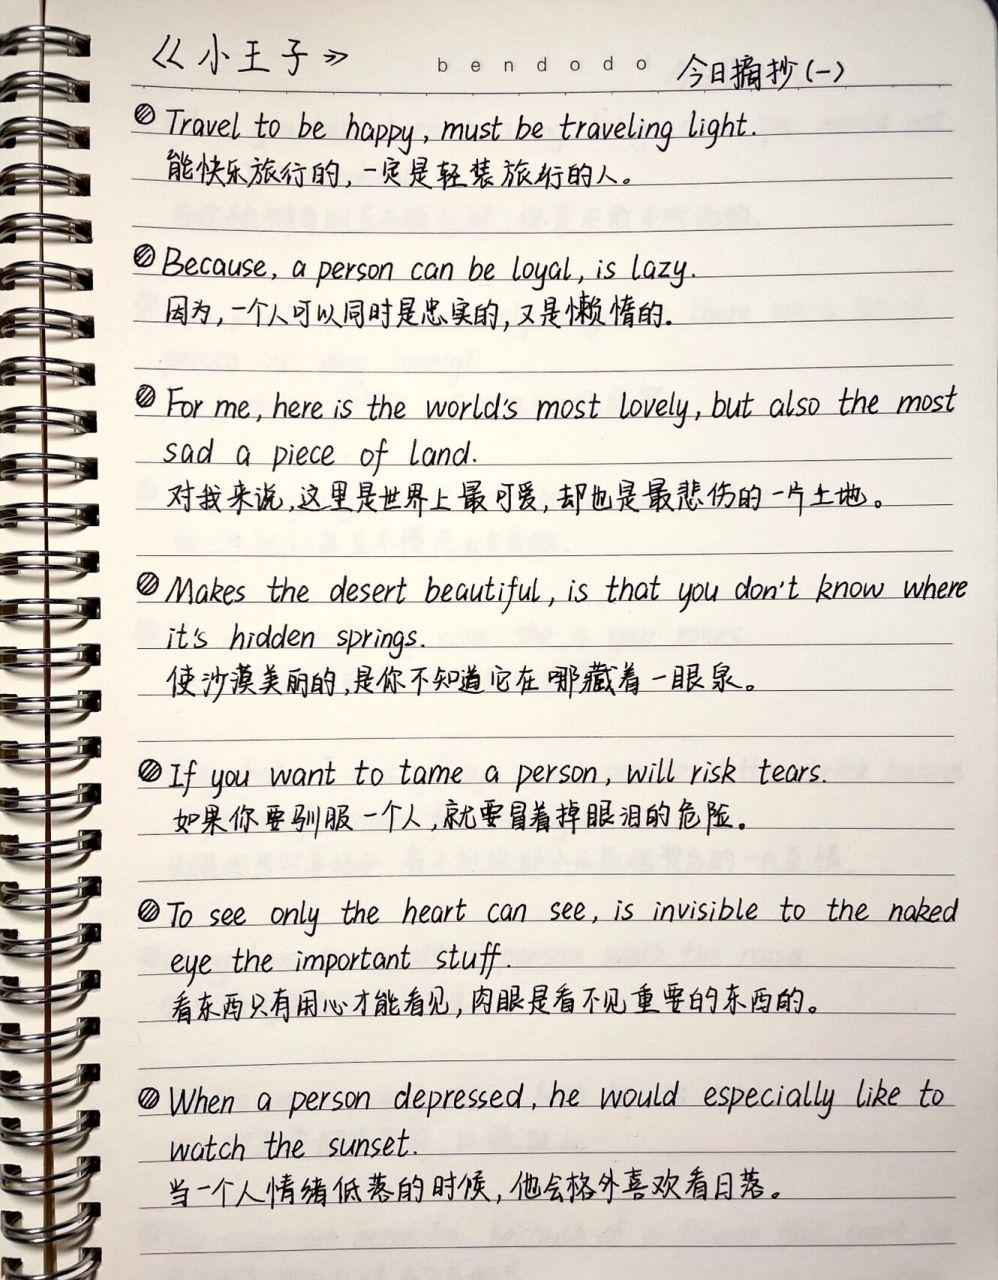 《小王子》
bendodo
今日摘抄(一)
Travel to be happy, must be traveling light.
能快乐旅行的,一定是轻装旅行的人。
Because, a person can be loyal, is lazy.
因为,一个人可以同时是忠实的,又是懒惰的.
For me, here is the world's most lovely, but also the most
sad a piece of land.
对我来说,这里是世界上最可爱,却也是最悲伤的一片土地。
Makes the desert beautiful, is that you don't know where
it's hidden springs.
使沙漠美丽的,是你不知道它在哪藏着一眼泉。
If you want to tame a person, will risk tears.
如果你要驯服一个人,就要冒着掉眼泪的危险。
To see only the heart can see, is invisible to the naked
eye the important stuff.
看东西只有用心才能看见,肉眼是看不见重要的东西的。
When a person depressed, he would especially like to
watch the sunset.
当一个人情绪低落的时候,他会格外喜欢看日落。